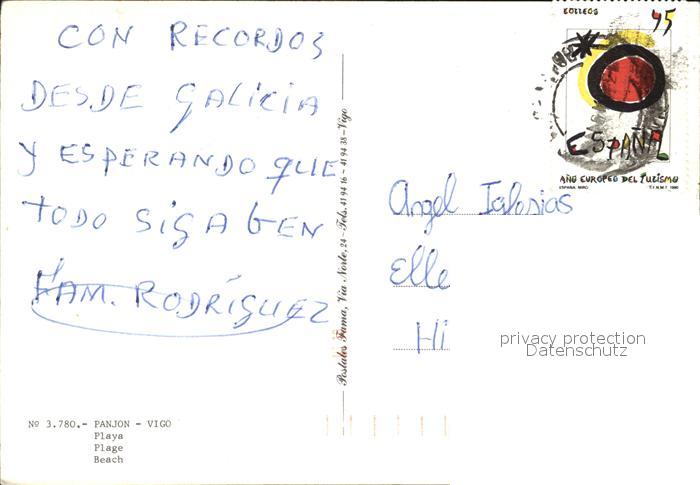 CON RECORDOS
DESDE GALICIA
Y ESPERANDO QUE
TODO SIGA BEN
FAM. RODRÍGUEZ
Nº 3.780.- PANJON - VIGO
Playa
Plage
Beach
Postales Fama, Vía Norte, 24 - Tels. 41 94 16 - 41 94 38 - Vigo
CORREOS
45
ESPAÑA
AÑO EUROPEO DEL TURISMO
ESPAÑA. MIRO
F.N.M.T. 1990
Angel Iglesias
Elle
Hi
privacy protection
Datenschutz